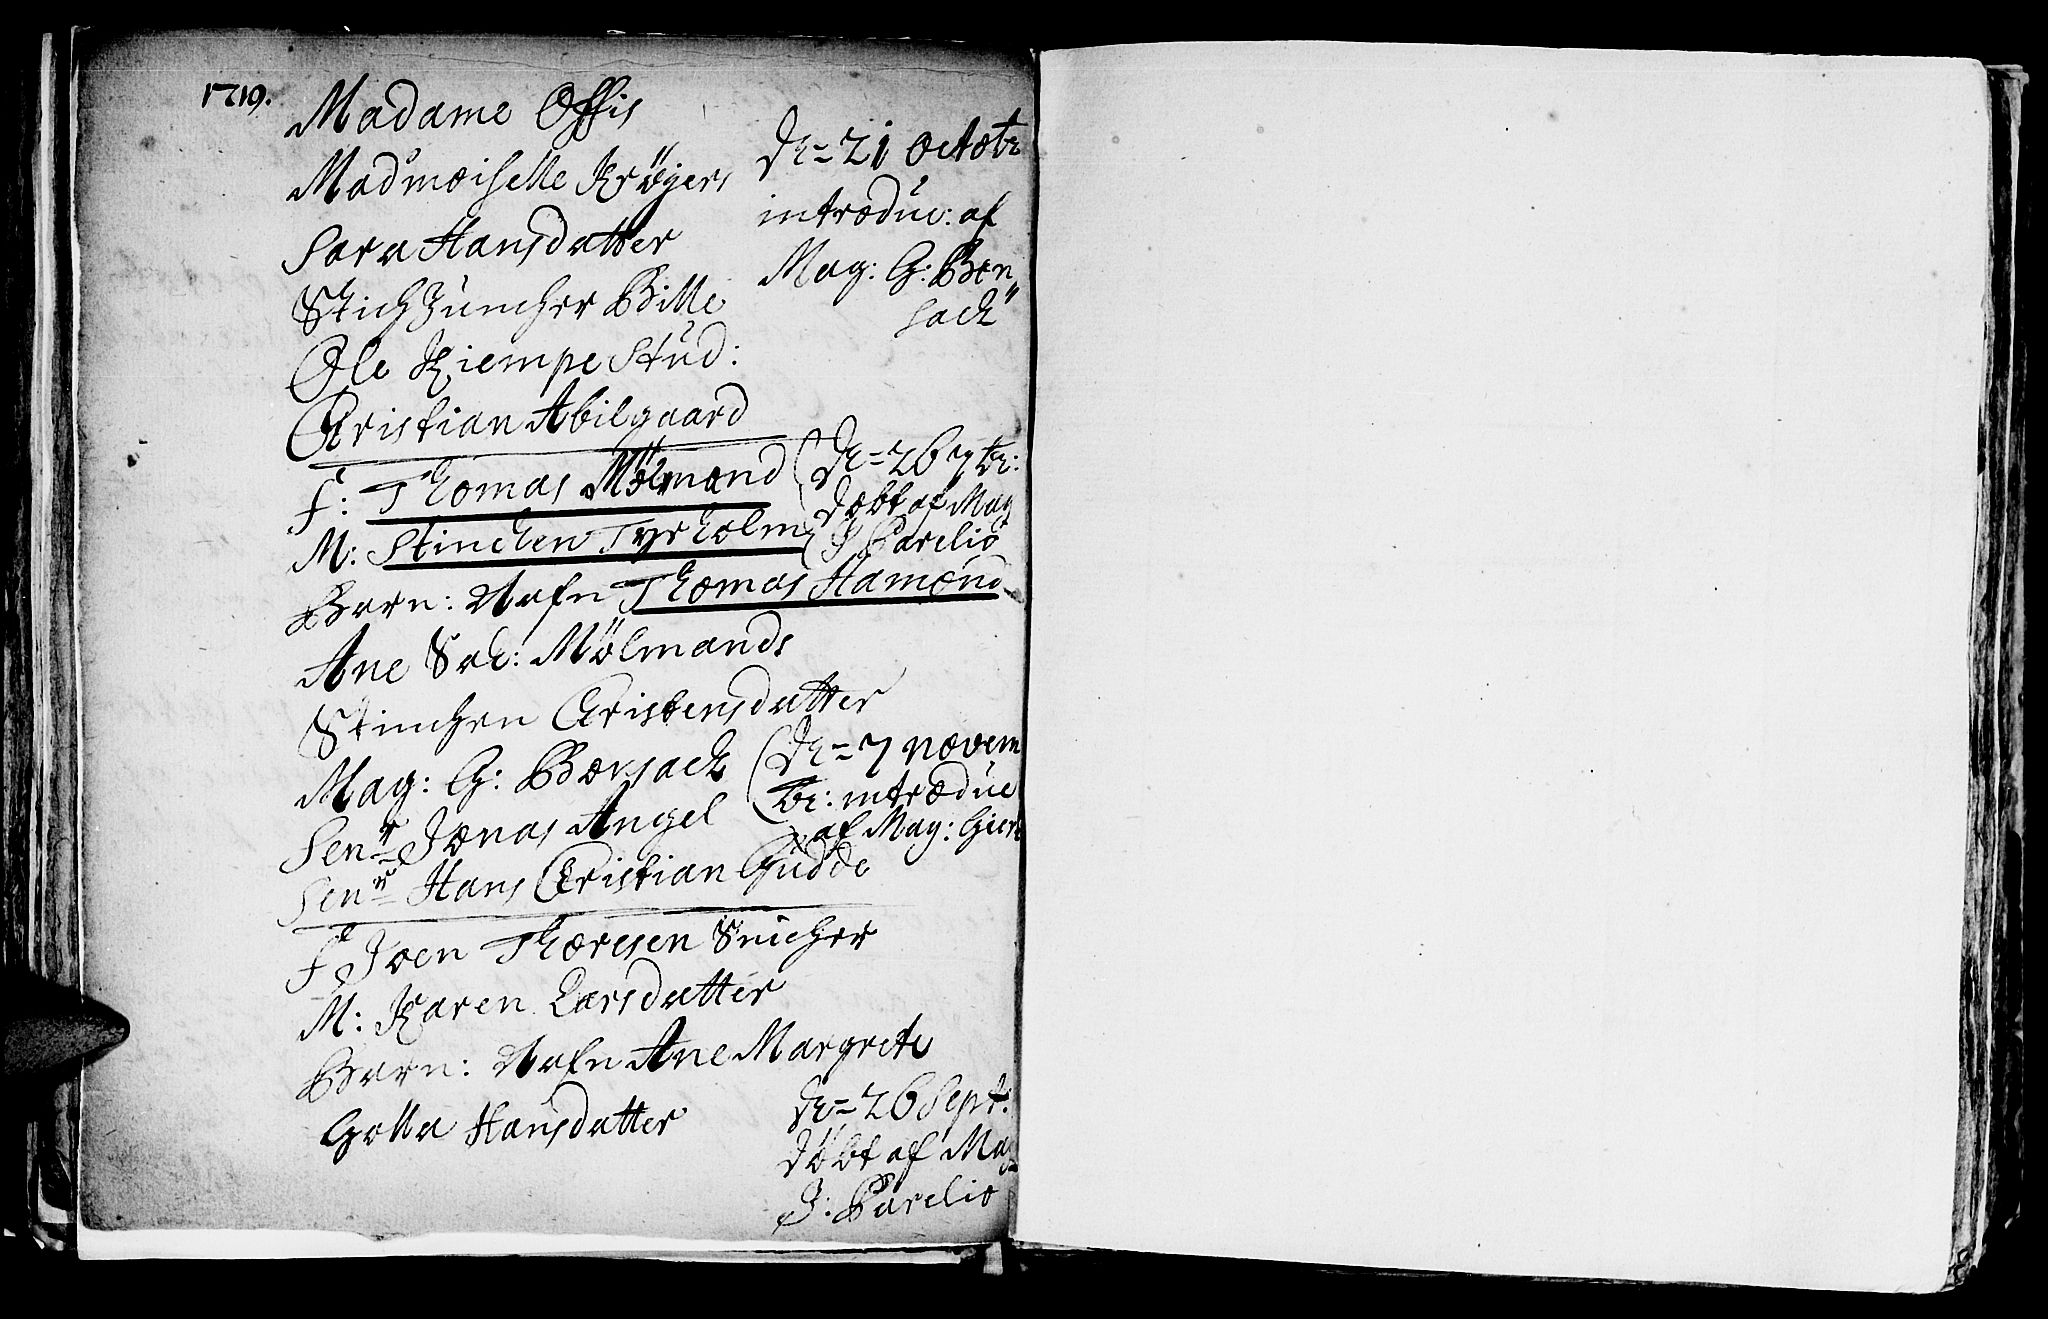 1719.
Madame Offis
Madmoiselle Krøgers
Sara Hansdatter
Stich Juncher Bille
Ole Kiempe Stud:
Christian Abilgaard
d: = 21 octobr
introduc: af
Mag: G: Bor
sach
F: Thomas Mölmand
M: Stinchen Tyrholm
Barn: Nafn Thomas Hamond
d: = 26 7br:
døbt af Mag
J Parelio
Ane Sal: Mölmands
Stinchen Christensdatter
Mag: G: Borsach
Senr Jonas Angel
Senr Hans Christian Gudde
d: = 7 novem
br: introduc
af Mag: Giert
F Joen Thoresen Snicher
M: Karen Larsdatter
Barn: Nafn Ane Margrete
Golla Hansdatter
d: = 26 Sept:
døbt af Mag
J: Parelio